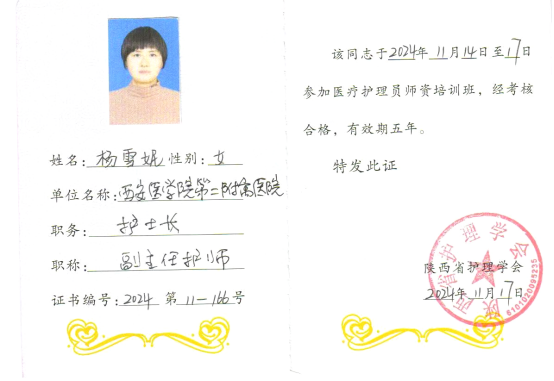 姓名：杨雪妮 性别：女
单位名称：西安医学院第二附属医院
职务：护士长
职称：副主任护师
证书编号：2024 第 11-166号
该同志于2024年 11月14日至17日
参加医疗护理员师资培训班，经考核
合格，有效期五年。
特发此证
陕西省护理学会
陕西省护理学会
2024年 11月17日
6101020095235